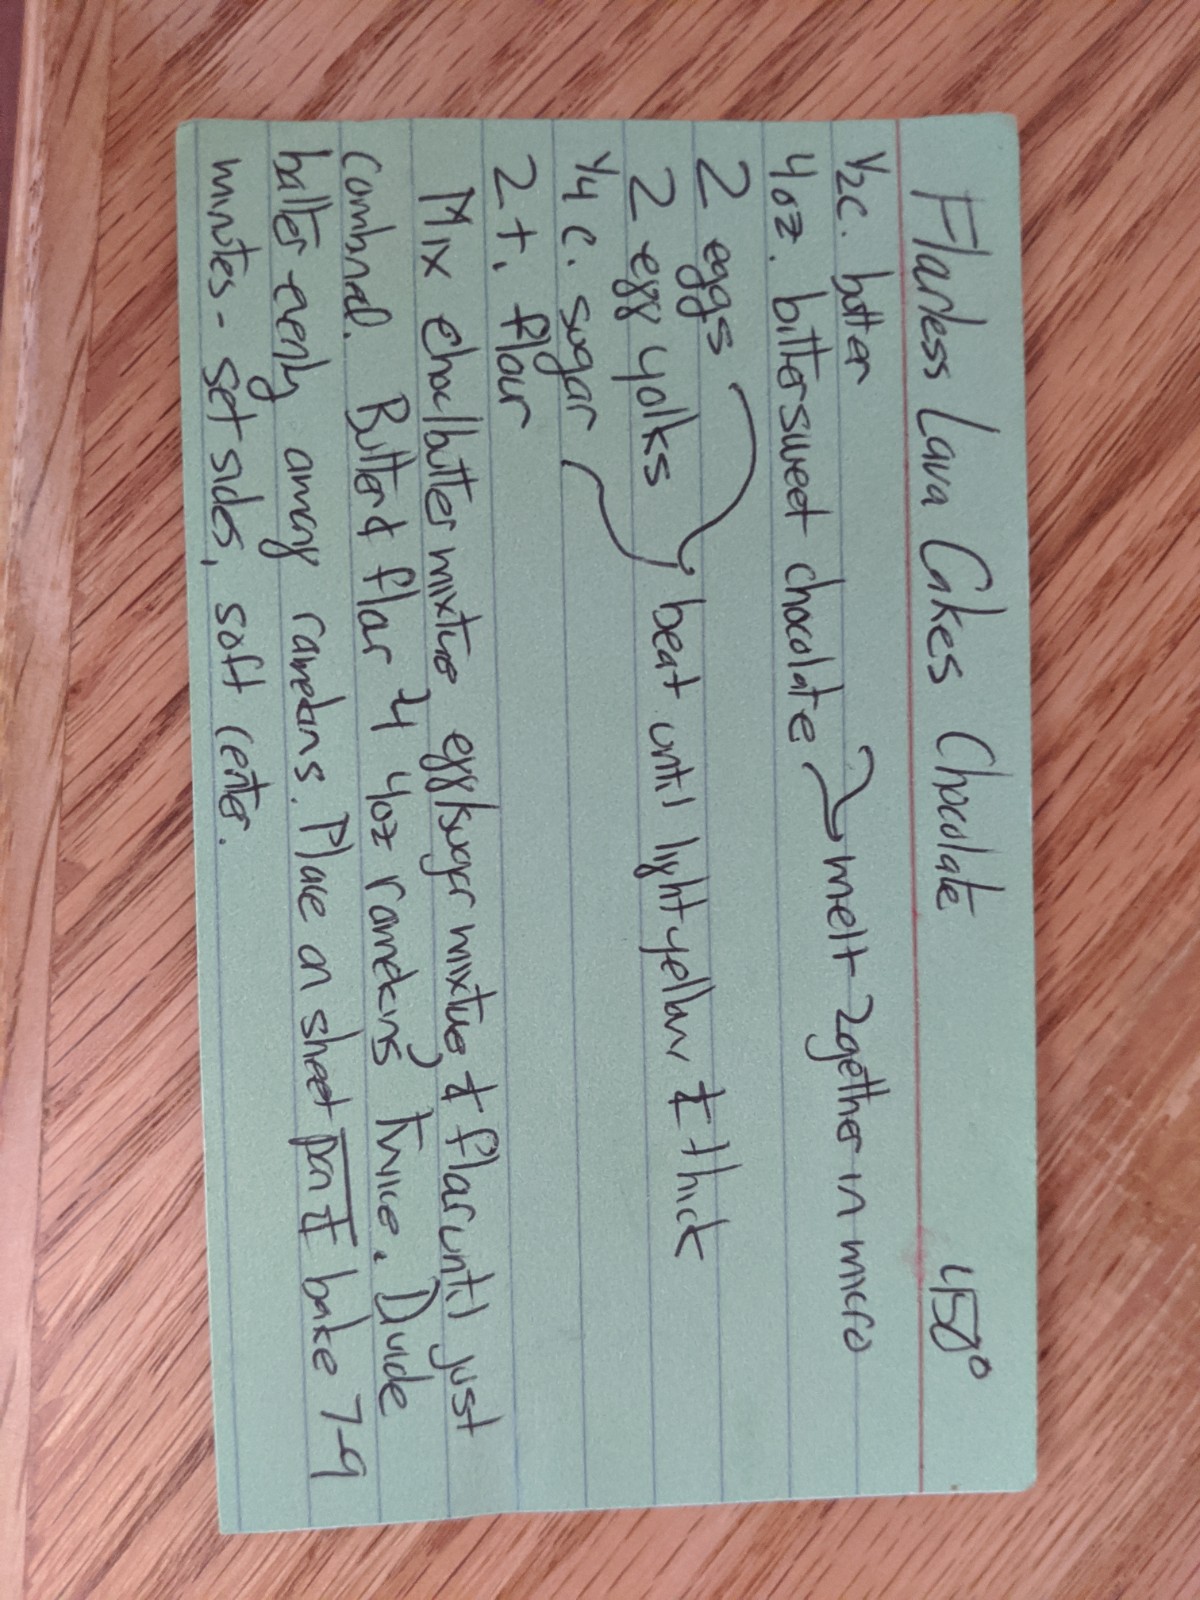 Flourless Lava Cakes Chocolate 450°
1/2 c. butter
4 oz. bittersweet chocolate melt 2gether in micro
2 eggs
2 egg yolks beat until light yellow & thick
1/4 c. sugar
2 t. flour
Mix choc/butter mixture, egg/sugar mixture & flour until just
combined. Butter & flour 4 4oz ramekins twice. Divide
batter evenly among ramekins. Place on sheet pan & bake 7-9
minutes - set sides, soft center.